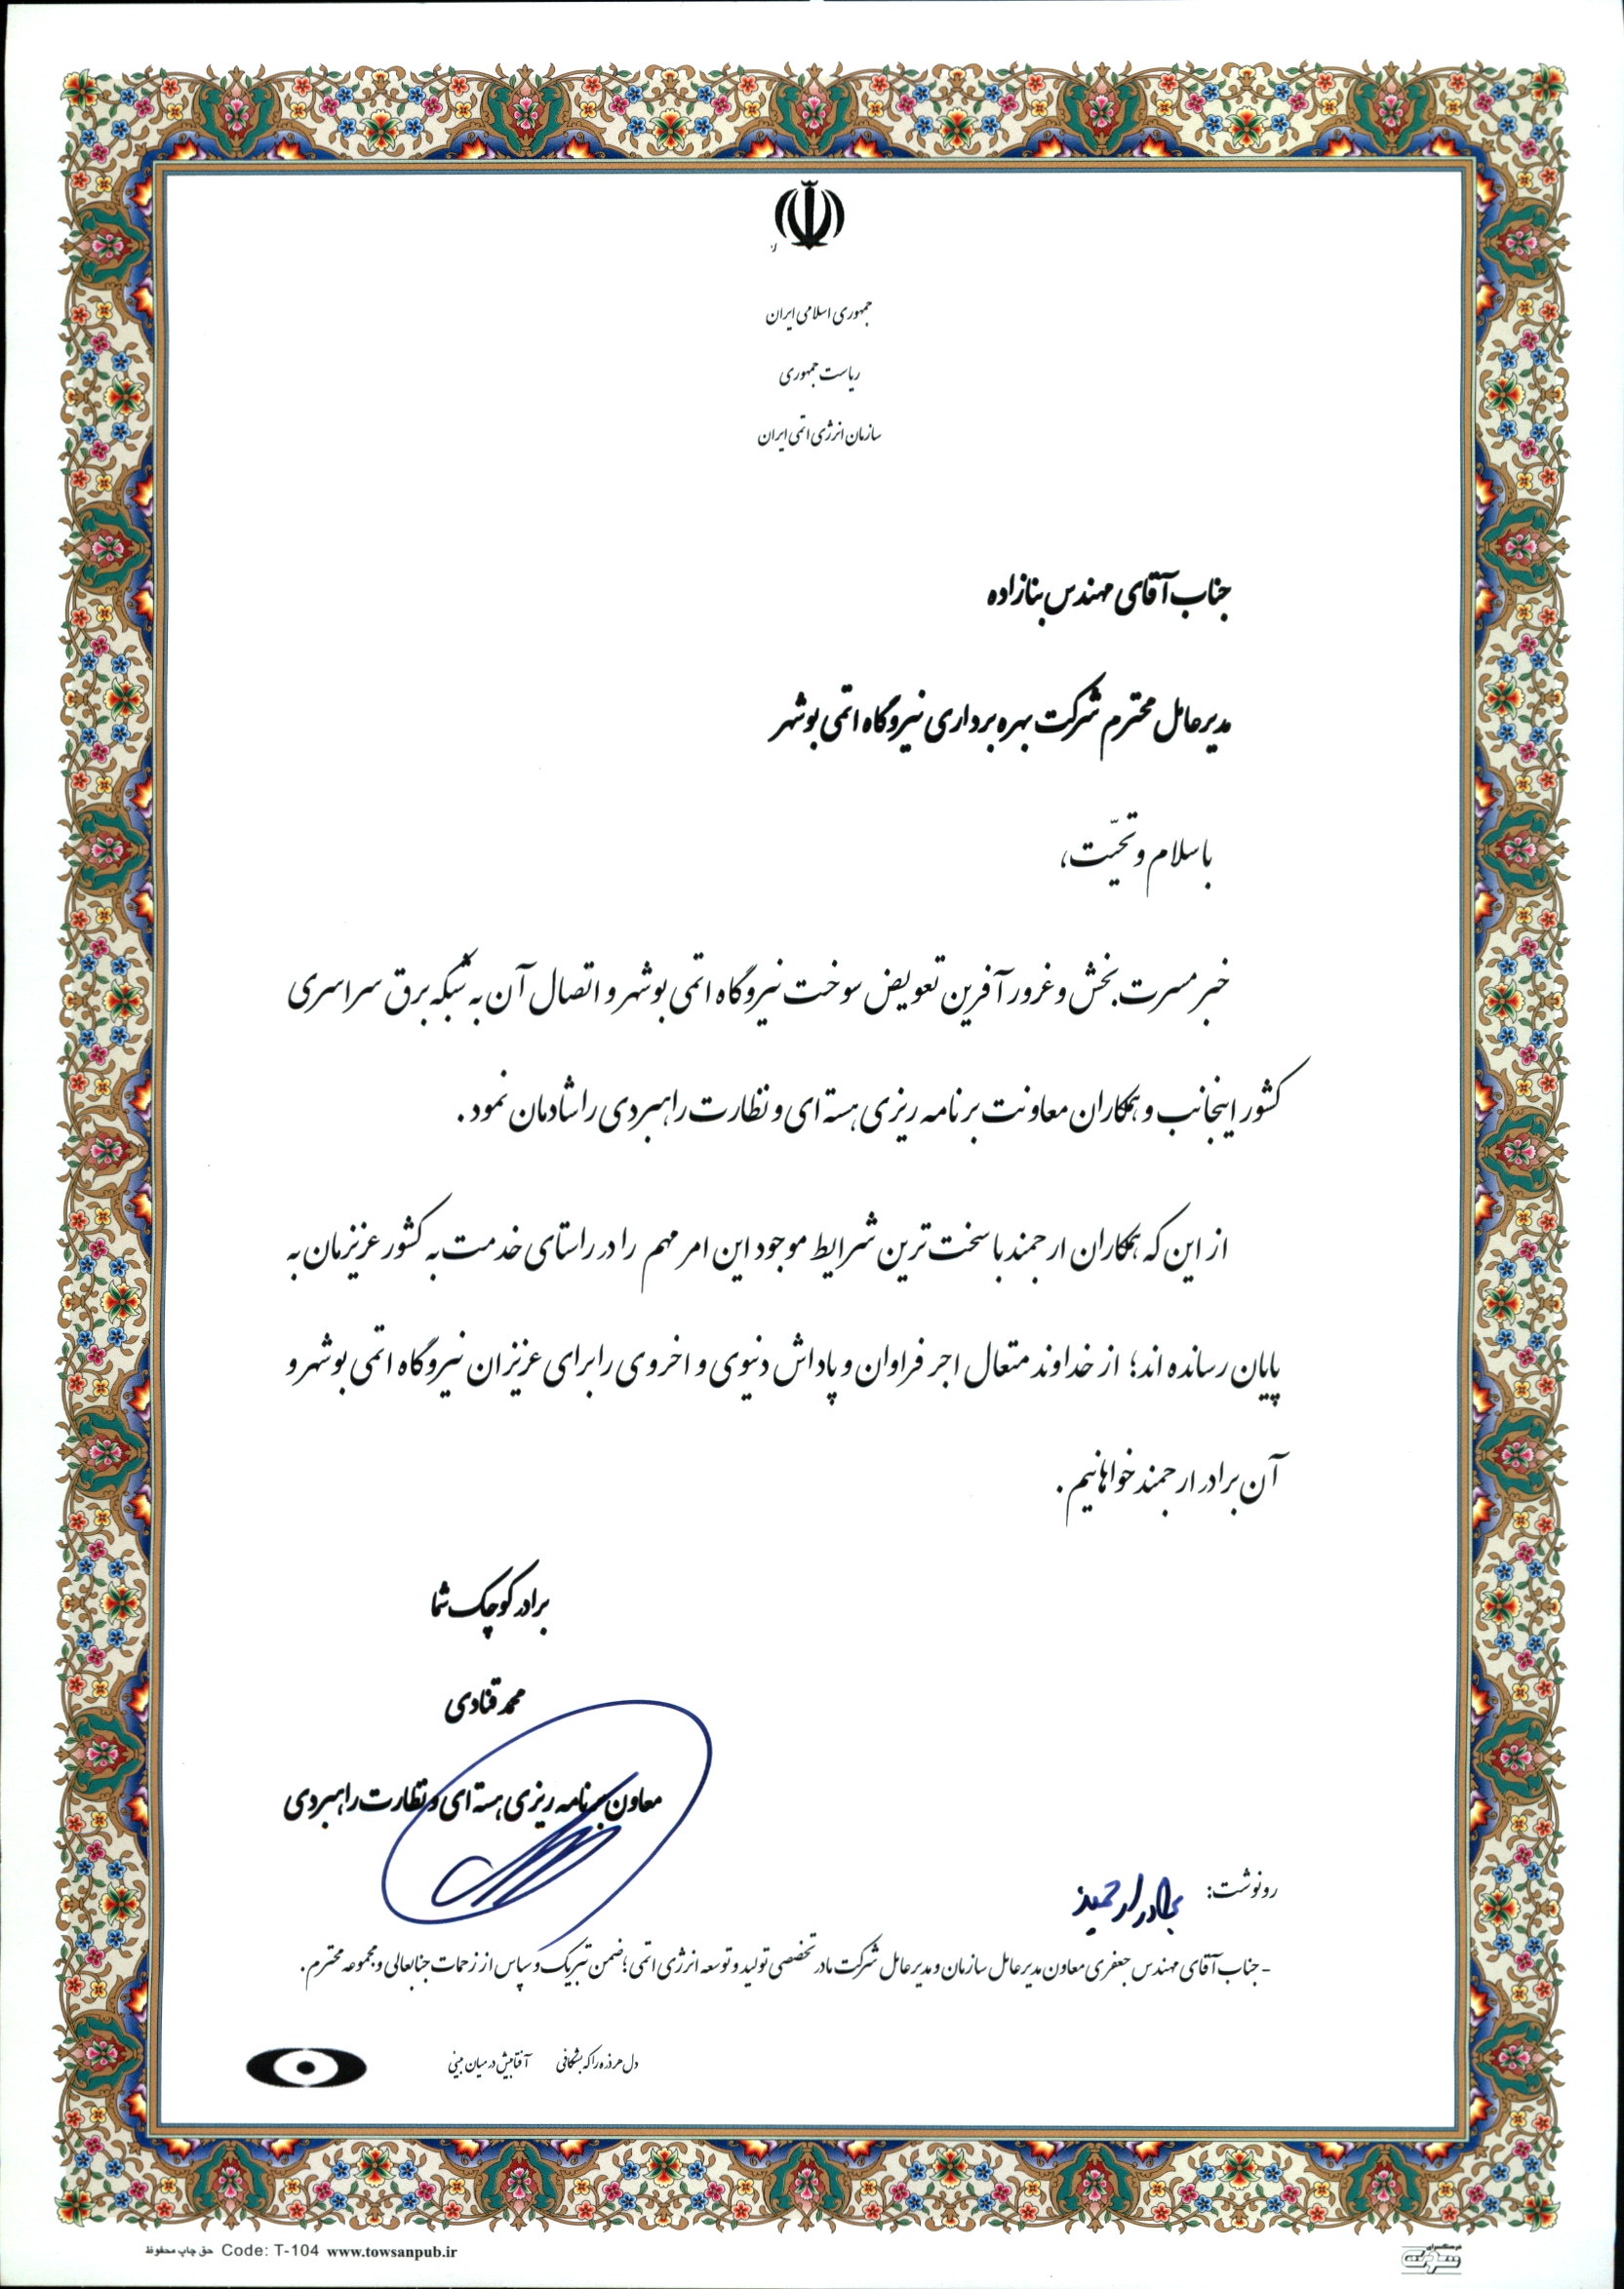 جمهوری اسلامی ایران
ریاست جمهوری
سازمان انرژی اتمی ایران
جناب آقای مهندس بنازاده
مدیرعامل محترم شرکت بهره برداری نیروگاه اتمی بوشهر
با سلام و تحیّت،
خبر مسرت بخش و غرور آفرین تعویض سوخت نیروگاه اتمی بوشهر و اتصال آن به شبکه برق سراسری
کشور اینجانب و همکاران معاونت برنامه ریزی هسته ای و نظارت راهبردی را شادمان نمود.
از این که همکاران ارجمند با سخت ترین شرایط موجود این امر مهم را در راستای خدمت به کشور عزیزمان به
پایان رسانده اند؛ از خداوند متعال اجر فراوان و پاداش دنیوی و اخروی را برای عزیزان نیروگاه اتمی بوشهر و
آن برادر ارجمند خواهانیم.
برادر کوچک شما
محمد قنادی
معاون برنامه ریزی هسته ای و نظارت راهبردی
رونوشت: برادر ارجمند
- جناب آقای مهندس جعفری معاون مدیرعامل سازمان و مدیرعامل شرکت مادر تخصصی تولید و توسعه انرژی اتمی؛ ضمن تبریک و سپاس از زحمات جنابعالی و مجموعه محترم.
دل هر ذره را که بشکافی آفتابیش در میان بینی
حق چاپ محفوظ Code: T-104 www.towsanpub.ir